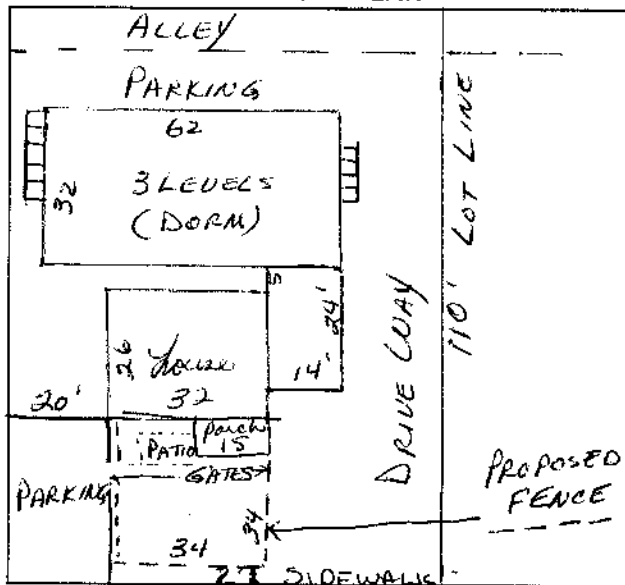 ALLEY
PARKING
62
32
3 LEVELS
(DORM)
110' LOT LINE
5
24'
14'
DRIVE WAY
26
House
32
20'
PATIO
Porch
15
GATES
PARKING
34
34
PROPOSED
FENCE
SIDEWALK